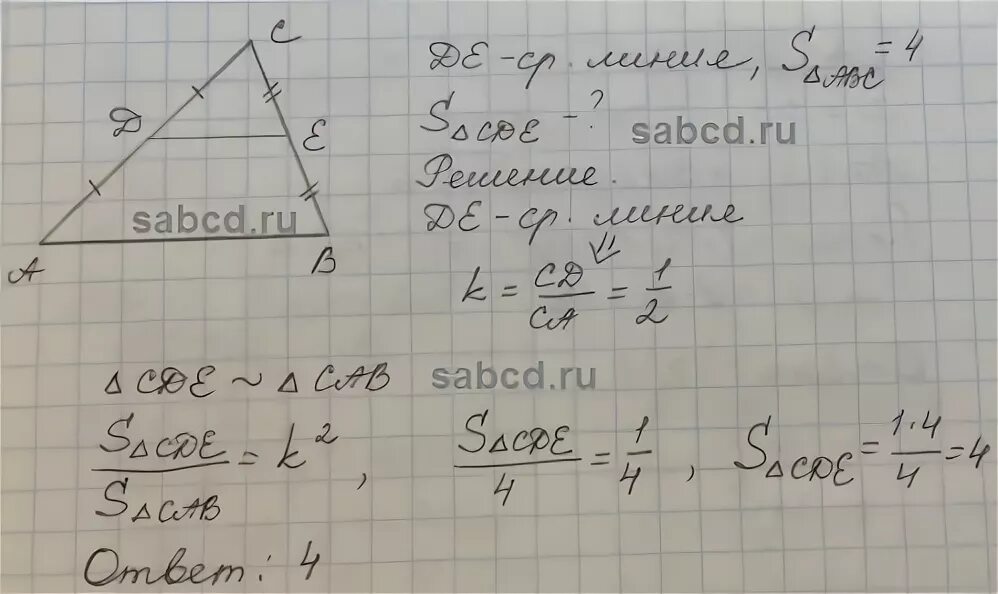 C
D
E
A
B
DE - ср. линия, S△ABC = 4
S△CDE - ?
sabcd.ru
Решение.
sabcd.ru
DE - ср. линия
⇓
k = CD/CA = 1/2
△CDE ~ △CAB
sabcd.ru
S△CDE/S△CAB = k², S△CDE/4 = 1/4, S△CDE = 1·4/4 = 4
Ответ: 4